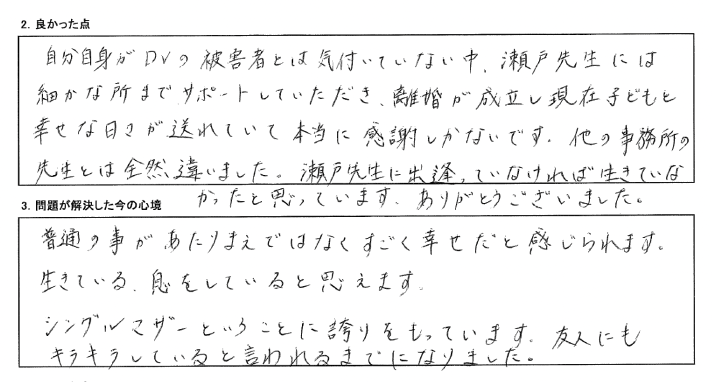 2. 良かった点
自分自身がDVの被害者とは気付いていない中、瀬戸先生には
細かな所までサポートしていただき、離婚が成立し現在子どもと
幸せな日々が送れていて本当に感謝しかないです。他の事務所の
先生とは全然違いました。瀬戸先生に出逢っていなければ生きていな
かったと思っています。ありがとうございました。
3. 問題が解決した今の心境
普通の事があたりまえではなくすごく幸せだと感じられます。
生きている、息をしていると思えます。
シングルマザーということに誇りをもっています。友人にも
キラキラしていると言われるまでになりました。